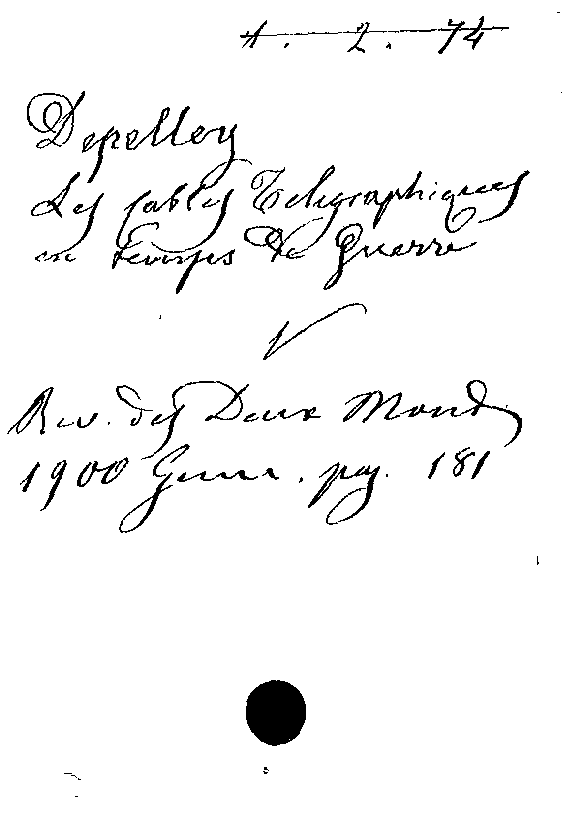 4. 2. 74
Depelley
Les cables Télégraphiques
en temps de Guerre
Rev. des Deux Mond
1900 pag. 181